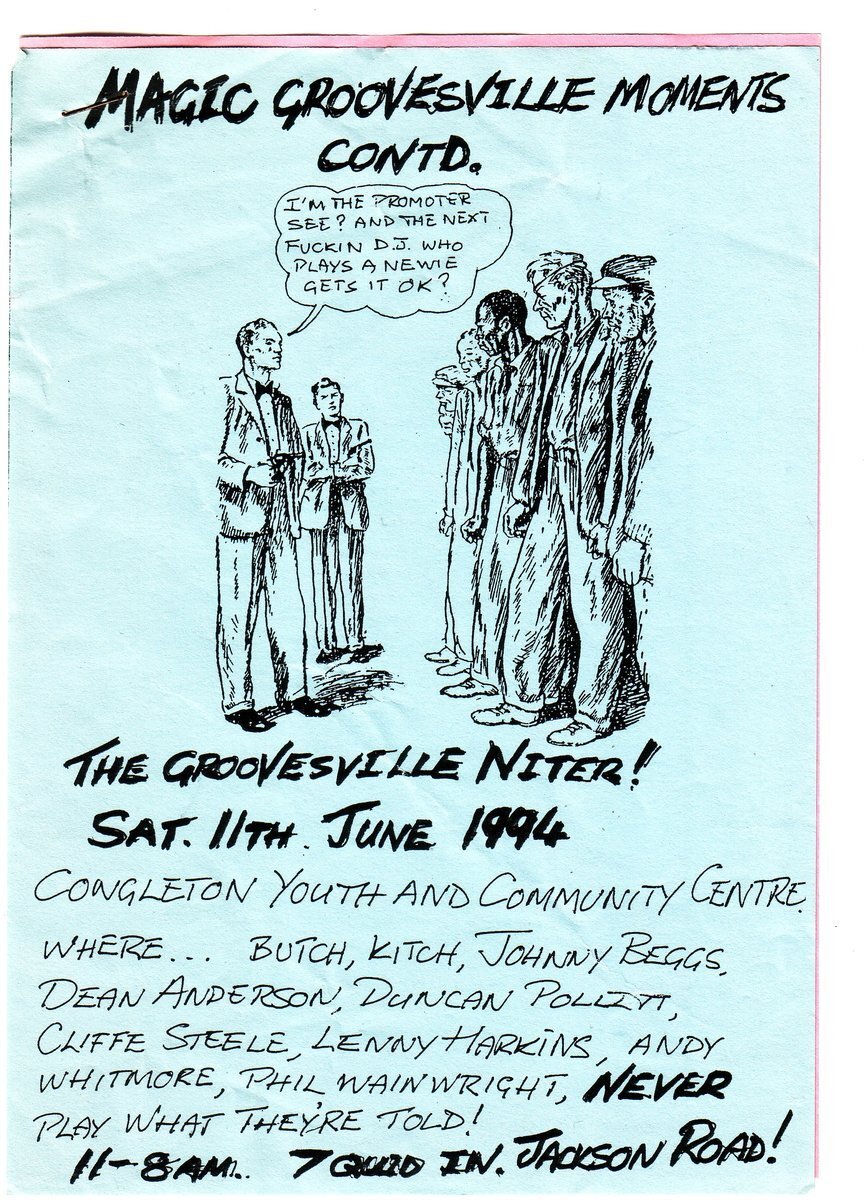 MAGIC GROOVESVILLE MOMENTS
CONTD.
I'M THE PROMOTER
SEE? AND THE NEXT
FUCKIN D.J. WHO
PLAYS A NEWIE
GETS IT OK?
THE GROOVESVILLE NITER!
SAT. 11TH. JUNE 1994
CONGLETON YOUTH AND COMMUNITY CENTRE.
WHERE... BUTCH, KITCH, JOHNNY BEGGS,
DEAN ANDERSON, DUNCAN POLLITT,
CLIFFE STEELE, LENNY HARKINS, ANDY
WHITMORE, PHIL WAINWRIGHT, NEVER
PLAY WHAT THEY'RE TOLD!
11-8AM.. 7 QUID IN. JACKSON ROAD!